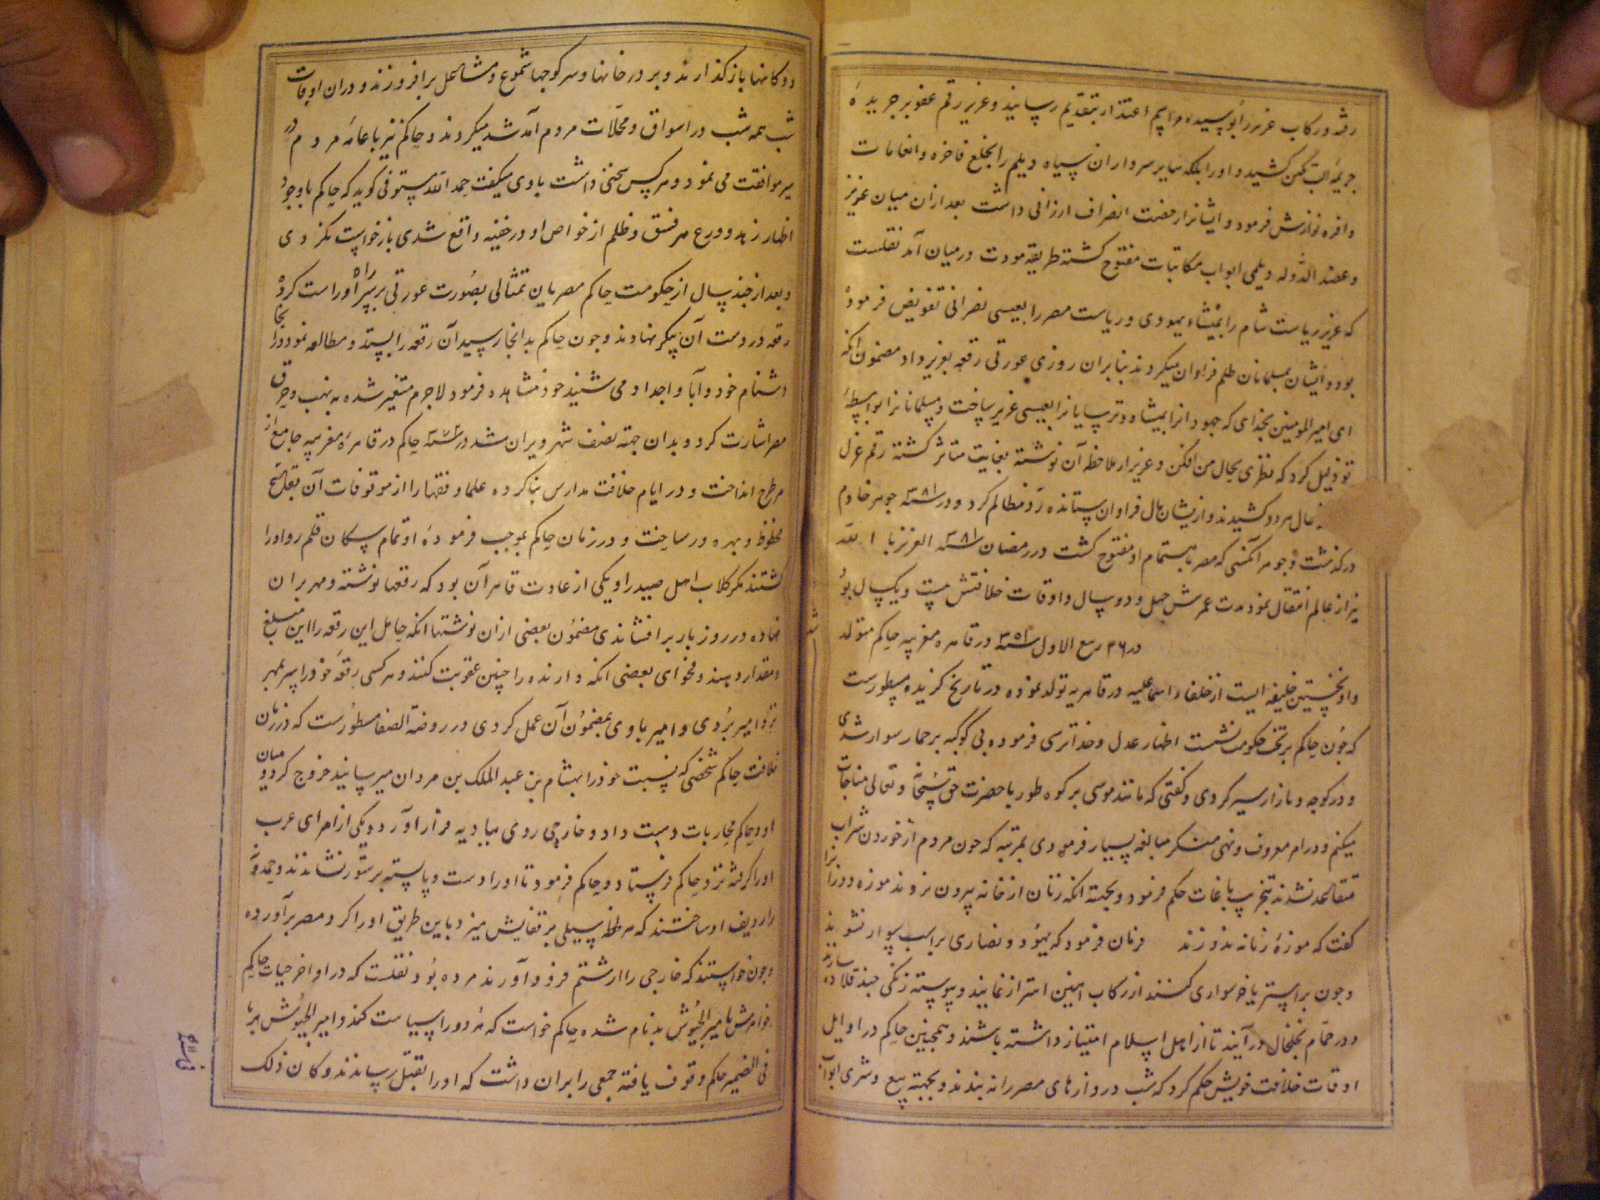 رفته در رکاب عزیز را بوسیده مراسم اعتذار بتقدیم رسانید و عزیز رقم عفو بر جریده
جریمه البتکین کشید و اورا بلکه سایر سرداران سپاه دیلم را بخلع فاخره و انعامات
وافره نوازش فرمود و ایشانرا رخصت انصراف ارزانی داشت بعد ازان میان عزیز
و عضد الدوله دیلمی ابواب مکاتبات مفتوح کشته طریقه مودت در میان آمد نقلست
که عزیز ریاست شام را بمیشاء یهودی و ریاست مصر را بعیسی نصرانی تفویض فرموده
بود و ایشان بمسلمانان ظلم فراوان میکردند بنابران روزی عورتی رقعه بعزیز داد مضمون آنکه
ای امیر المومنین بخدای که جهودانرا بمیشا و ترسایانرا بعیسی عزیز ساخت و مسلمانانرا بواسطهٔ
تو ذلیل کرد که نظری بحال من افکن و عزیز از ملاحظه آن نوشته بغایت متاثر کشته رقم عزل
حال هر دو کشید و از یشان مال فراوان ستانده رد مظالم کرد و در سنه ۳۸۱ جوهر خادم
درکذشت و جوهر آنکسی که مصر باهتمام او مفتوح کشت در رمضان سنه ۳۸۶ العزیز بالله
نیز از عالم انتقال نمود مدت عمرش چهل و دو سال و اوقات خلافتش بیست و یکسال بود
در ۲۶ ربیع الاول سنه ۳۵۲ در قاهره مغربیه حاکم متولد
و او نخستین خلیفه ایست از خلفاء اسماعلیه در قاهریه تولد نموده در تاریخ کزیده مسطورست
که چون حاکم بر تخت حکومت نشست اظهار عدل و خداترسی فرموده بی کوکبه بر حمار سوار شدی
و در کوچه و بازار سیر کردی و کفتی که مانند موسی بر کوه طور با حضرت حق سبحانه و تعالی مناجات
میکنم و در امر معروف و نهی منکر مبالغه بسیار فرمودی بمرتبه که چون مردم از خوردن شراب
متقاعد نشدند بتخریب باغات حکم فرمود و بجهته آنکه زنان از خانه بیرون نروند موزه دوزانرا
کفت که موزهٔ زنانه ندوزند فرمان فرمود که یهود و نصاری بر اسب سوار نشوند
و چون بر استر یا خر سواری کنند از رکاب آهنین احتراز نمایند و پیوسته زنکی چند قلاده سازند
و در حمام بخلخال درآیند تا از اهل اسلام امتیاز داشته باشند و همچنین حاکم در اوایل
اوقات خلافت خویش حکم کرد که شب دروازهای مصر را نه بندند و بجهته بیع و شری ابواب
دوکانها باز کذارند و بر در خانها و سر کوچها شموع و مشاعل برافروزند و دران اوقات
شب همه شب در اسواق و محلات مردم آمد شد میکردند و حاکم نیز با عامهٔ مردم در
سیر موافقت می نمود و هر کس سخنی داشت با وی میکفت حمد الله مستوفی کوید که حاکم با وجود
اظهار زهد و ورع هر فسق و ظلم از خواص او در خفیه واقع شدی بازخواست نکردی
و بعد از چند سال از حکومت حاکم مصریان تمثالی بصورت عورتی بر سر راه او راست کرده
رقعه در دست آن پیکر نهادند و چون حاکم بدانجا رسید آن رقعه را بستد و مطالعه نمود و آنجا
دشنام خود و آبا و اجداد می شنید خود مشاهده فرمود لاجرم متغیر شده به نهب و حرق
مصر اشارت کرد و بدان جهته نصف شهر ویران شد در سنه حاکم در قاهرهٔ مغربیه جامع از
طرح انداخت و در ایام خلافت مدارس بنا کرده علما و فقها را از موقوفات آن بقاع
محظوظ و بهره ور ساخت و در زمان حاکم بموجب فرمودهٔ او تمام سکان قلمرو اورا
کشتند مکر کلاب اهل صید را و یکی از عادت قاهر آن بود که رقعها نوشته و مهر بران
نهاده در روز بار برافشاندی مضمون بعضی ازان نوشتها آنکه حامل این رقعه را این مبلغ
مقدار دهند و فحوای بعضی آنکه دارنده را چنین عقوبت کنند و هر کسی رقعهٔ خود را سر بمهر
نزد امیر بردی و امیر با وی بمضمون آن عمل کردی در روضة الصفا مسطورست که در زمان
خلافت حاکم شخصی که نسبت خود را بهشام بن عبد الملک بن مروان میرسانید خروج کرد و میان
او و حاکم محاربات دست داد و خارجی روی ببادیه فرار آورد و یکی از امرای عرب
اورا کرفته نزد حاکم فرستاد و حاکم فرمود تا اورا دست و پا بسته بر ستور نشاندند و حمدونه
را ردیف او ساختند که هر لحظه سیلی بر قفایش میزد باین طریق اورا کرد مصر برآورده
و چون خواستند که خارجی را از شتر فرود آورند مرده بود نقلست که در اواخر حیات حاکم
خواهرش با امیر الجیوش بدنام شده حاکم خواست که هر دو را سیاست کند و امیر الجیوش بر ما
فی الضمیر حاکم وقوف یافته جمعی را بران داشت که اورا بقتل رسانیدند و کان ذلک